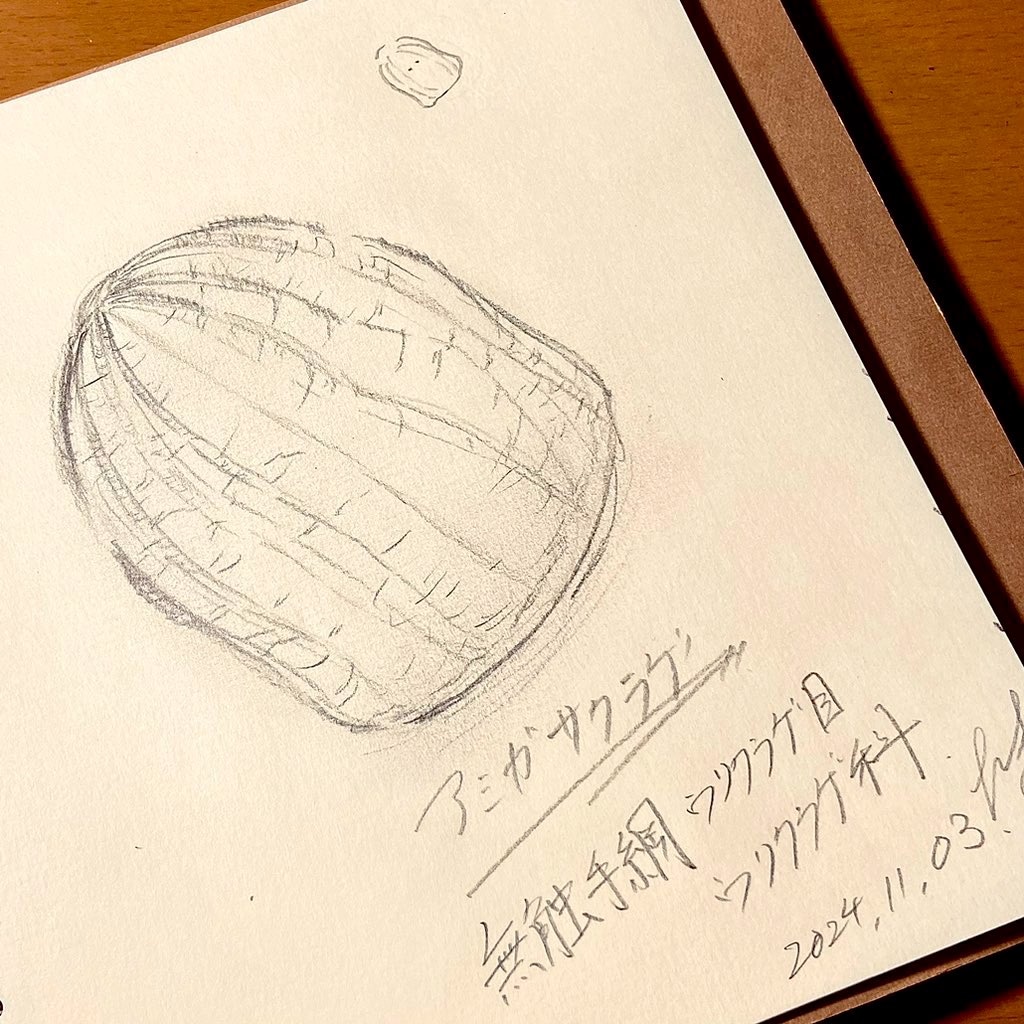 アミガサクラゲ
無触手綱 ウリクラゲ目
ウリクラゲ科
2024.11.03.